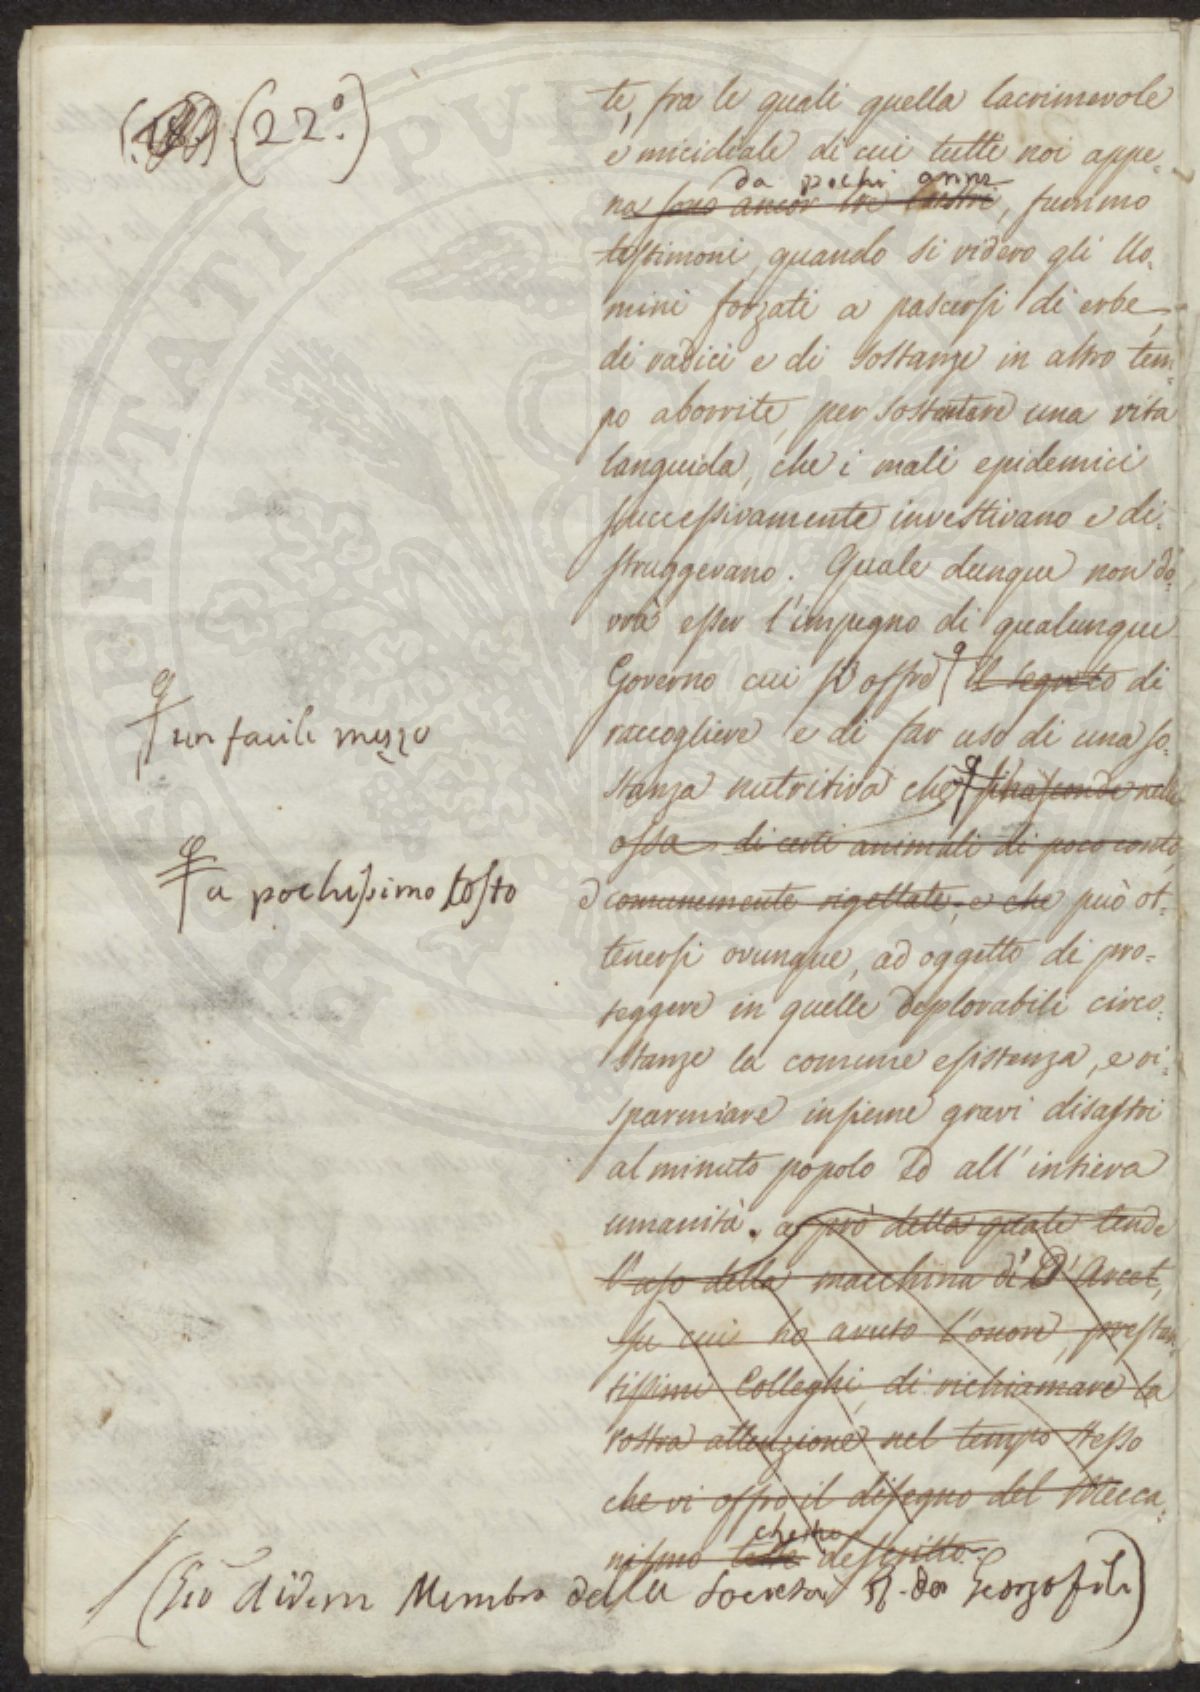 (22.º)
te, fra le quali quella lacrimevole
e micidiale di cui tutti noi appe-
da pochi anni
na sono ancor tre lustri, fummo
testimoni, quando si videro gli Uo-
mini forzati a pascersi di erbe,
di radici e di sostanze in altro tem-
po aborrite, per sostentare una vita
languida, che i mali epidemici
successivamente investivano e di-
struggevano. Quale dunque non do-
vrà esser l'impegno di qualunque
Governo cui si offre il segreto di
un facile mezzo
raccogliere e di far uso di una so-
stanza nutritiva che si nasconde nelle
ossa di certi animali di poco conto,
a pochissimo costo
e comunemente rigettate, e che può ot-
tenersi ovunque, ad oggetto di pro-
teggere in quelle deplorabili circo-
stanze la comune esistenza, e ri-
sparmiare insieme gravi disastri
al minuto popolo ed all'intiera
umanità. a prò della quale tende
l'uso della macchina di D'Arcet,
su cui ho avuto l'onore, prestan-
tissimi Colleghi, di richiamare la
vostra attenzione nel tempo stesso
che vi offro il disegno del Mecca-
che ho
nismo descritto.
Membro della Società R. dei Georgofili)